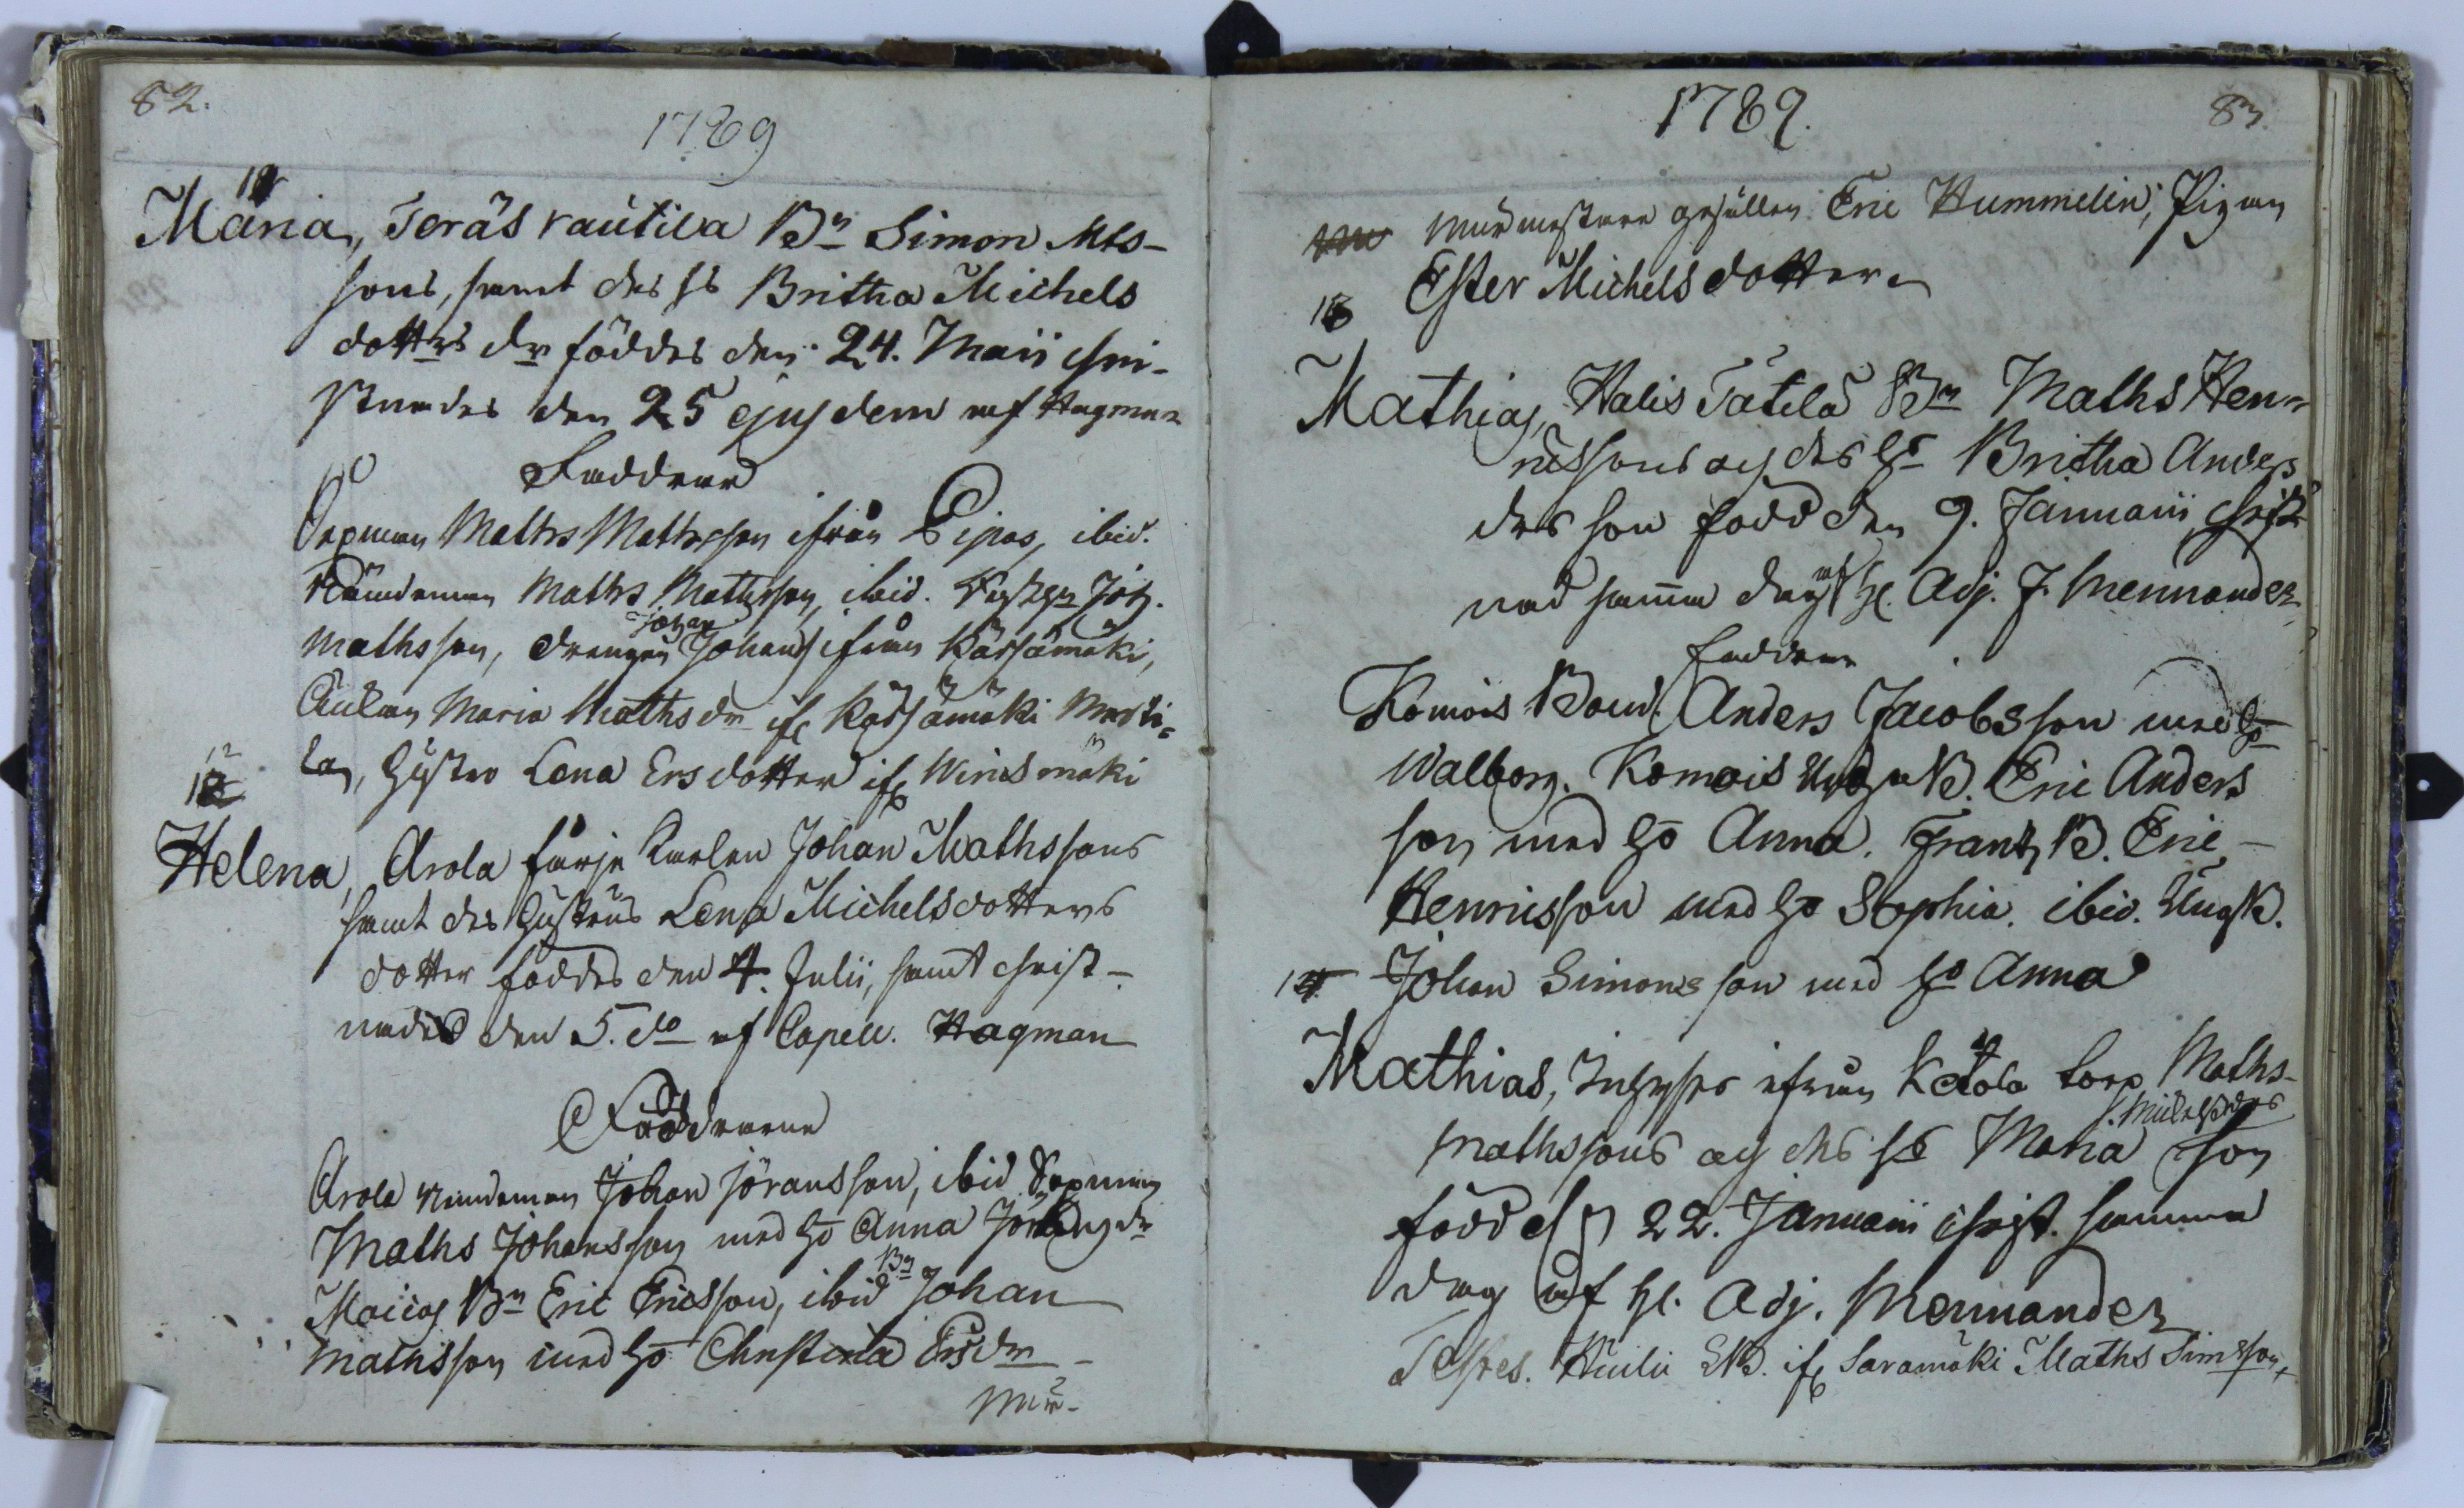 82.
1789
11
Maria, Teräsrautila Bn Simon Mts-
sons, samt des hs Britha Michels
dotters dr föddes den 24. Maii chri-
stnades den 25 ejusdem af Hagman
Faddrar
Sexman Maths Mathsson ifrån Pipas, ibid.
Nämdeman Maths Mathsson, ibid. Joh.
Mathsson, drengen Johan Johans ifrån Kärsämäki,
Änkan Maria Mathsdr if. Kärsämäki Marti-
la, hustro Lena Ersdotter if. Wirusmäki
12
Helena, Arola färje Karlen Johan Mathssons
samt des hustrus Lena Michelsdotters
dotter föddes den 4. Julii, samt christ-
nades den 5. do af Capell. Hagman
Faddrarne
Arola Nämdeman Johan Jöransson, ibid Sexman
Maths Johansson med ho Anna
Maicas Bn Eric Ericsson, ibid Bn Johan
Mathsson med ho Christina Ersdr
Mur-
1789.
83.
Murmestare gesällen Eric Hummelin, Pigan
Ester Michelsdotter
13
Mathias, Halis Tätilä Bn Maths Hen-
ricssons och des ho Britha Anders
drs son född den 9. Januarii christ-
nad samma dag af H. Adj. J. Mennander
Faddrar
Komois Bond. Anders Jacobsson med ho
Walborg. Komois Ungk B. Eric Anders
son med ho Anna. Frantz B. Eric
Henricsson med ho Sophia. ibid. Ungk B.
14 Johan Simonsson med ho Anna
Mathias, Inhyses ifrån Ketola torp Maths
Mathssons och des ho Maria Michelsdrs son
född d. 22. Januarii christ. samma
dag af H. Adj. Mennander
Testes. if. Saramäki Maths Simsson,